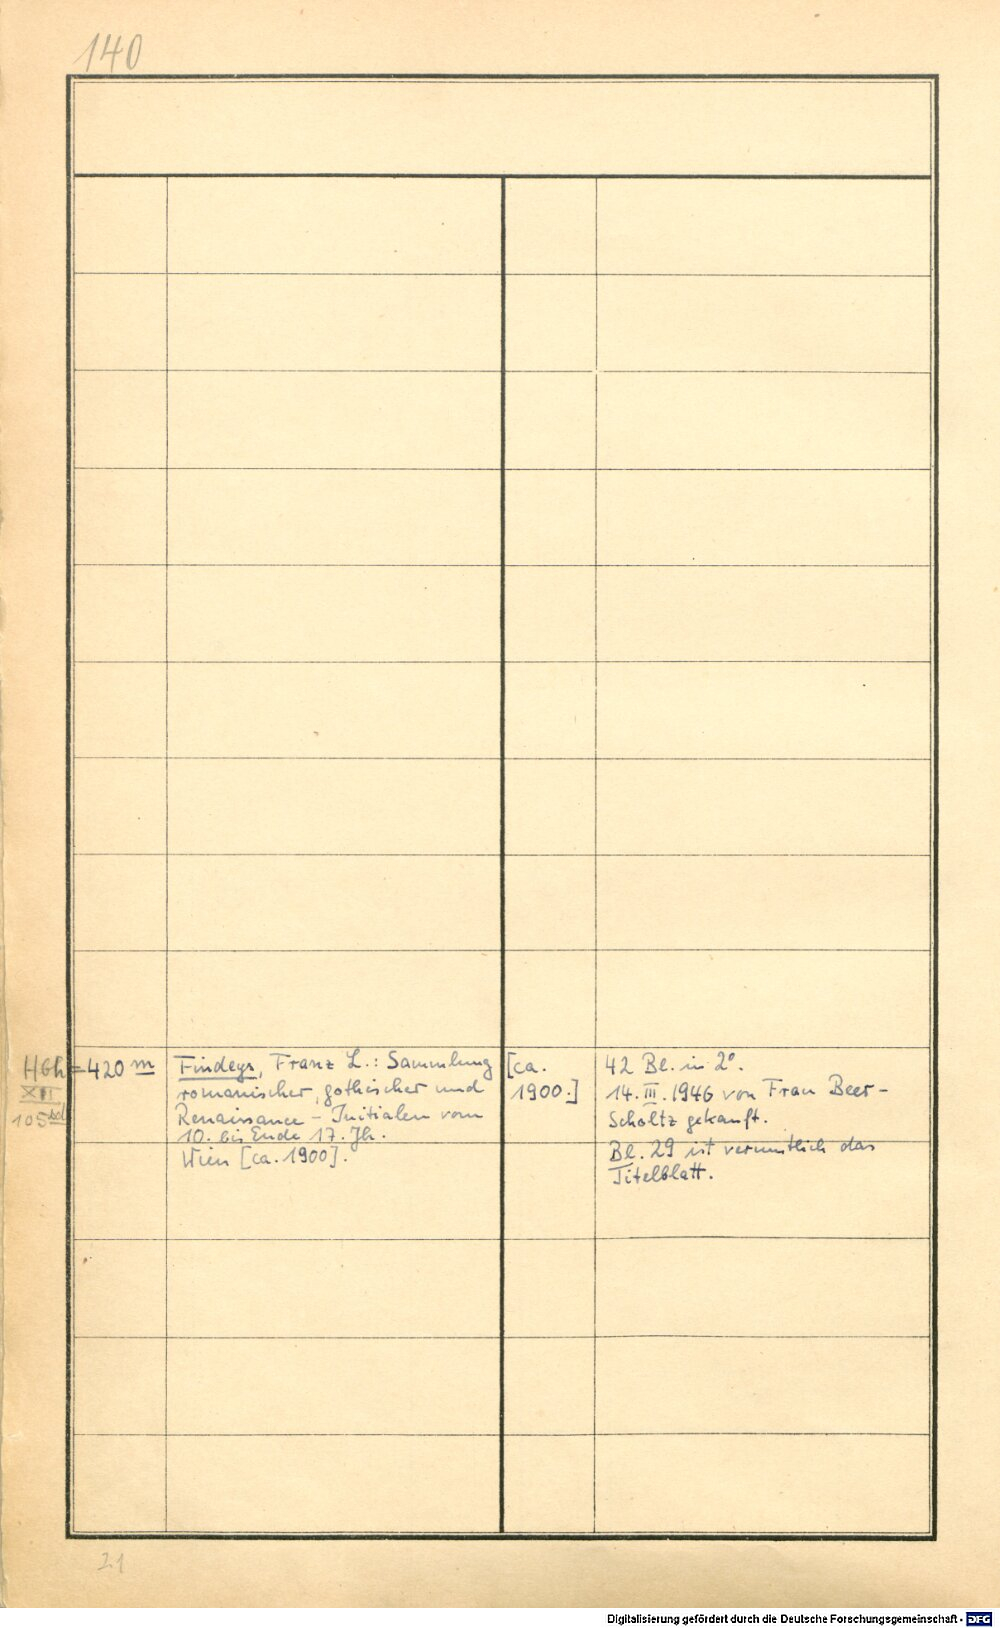 140
HGh = 420 m
XII
105
Findeys, Franz L.: Sammlung
romanischer, gothischer und
Renaissance - Initialen vom
10. bis Ende 17. Jh.
Wien [ca. 1900].
[ca.
1900.]
42 Bl. in 2°
14. III. 1946 von Frau Beer-
Scholtz gekauft.
Bl. 29 ist vermutlich das
Titelblatt.
21
Digitalisierung gefördert durch die Deutsche Forschungsgemeinschaft - DFG